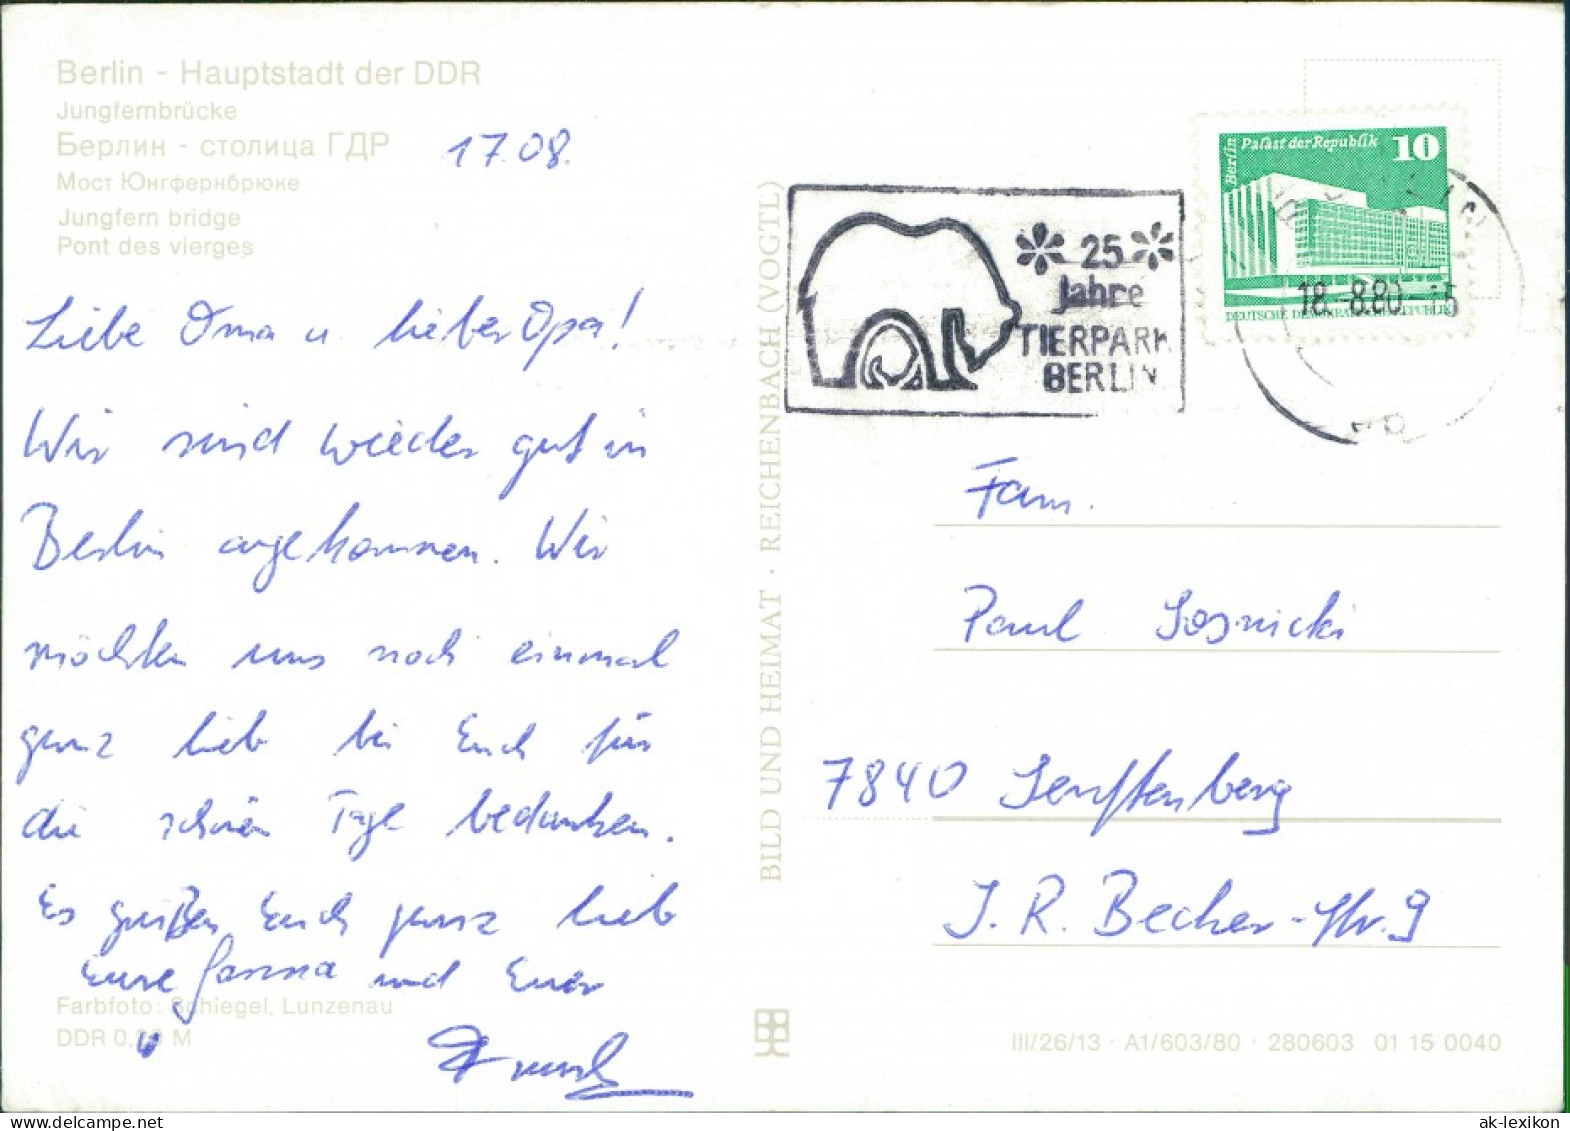 Berlin - Hauptstadt der DDR
Jungfernbrücke
Берлин - столица ГДР
Мост Юнгфернбрюке
Jungfern bridge
Pont des vierges
17.08.
Liebe Oma u. lieber Opa!
Wir sind wieder gut in
Berlin angekommen. Wir
möchten uns noch einmal
ganz lieb bei Euch für
die schönen Tage bedanken.
Es grüßen Euch ganz lieb
Eure und Euer
Farbfoto: Schiegel, Lunzenau
DDR 0,20 M
BILD UND HEIMAT · REICHENBACH (VOGTL)
25
Jahre
TIERPARK
BERLIN
Berlin Palast der Republik 10
DEUTSCHE DEMOKRATISCHE REPUBLIK
18.-8.80-15
Fam.
Paul Sosnicki
7840 Senftenberg
J. R. Becher-Str. 9
III/26/13 · A1/603/80 · 280603 01 15 0040
ak-lexikon